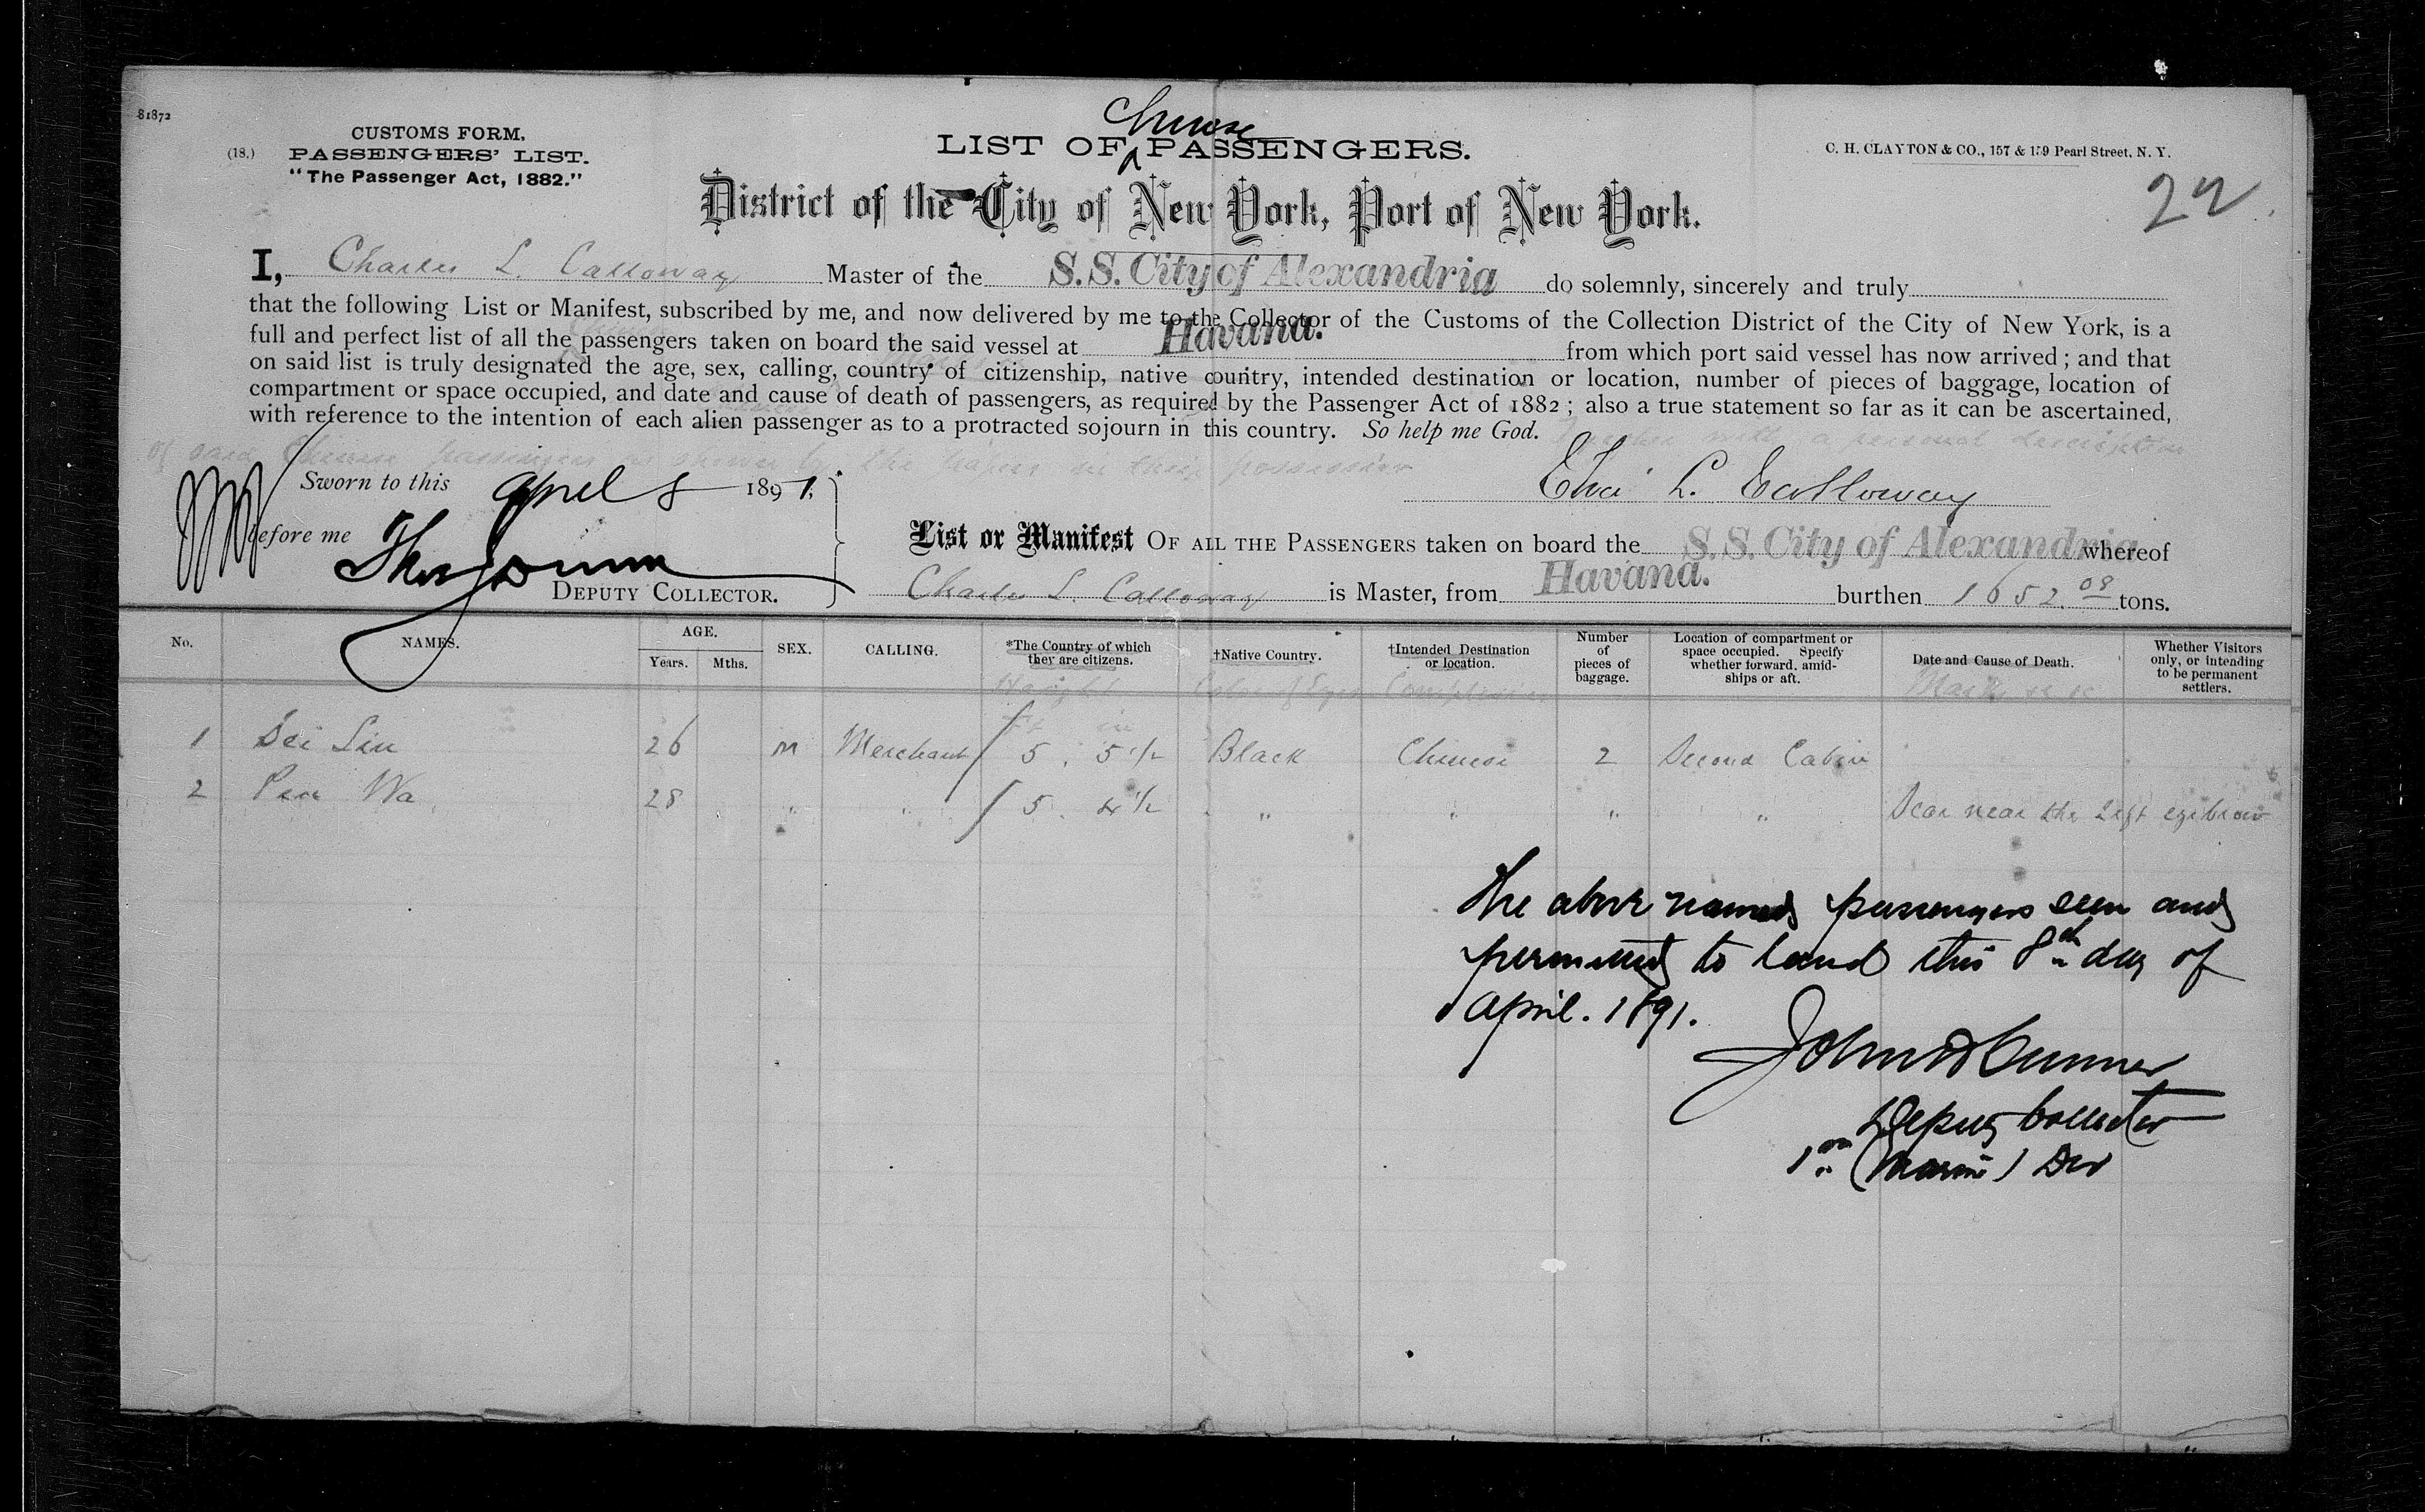 81872
CUSTOMS FORM.
(18.) PASSENGERS' LIST.
"The Passenger Act, 1882."
Chinese
LIST OF ^ PASSENGERS.
C. H. CLAYTON & CO., 157 & 159 Pearl Street, N. Y.
22
District of the City of New York, Port of New York.
I, Charles L. Calloway Master of the S.S. City of Alexandria do solemnly, sincerely and truly
that the following List or Manifest, subscribed by me, and now delivered by me to the Collector of the Customs of the Collection District of the City of New York, is a
Chinese
full and perfect list of all the passengers taken on board the said vessel at Havana. from which port said vessel has now arrived; and that
on said list is truly designated the age, sex, calling, country of citizenship, native country, intended destination or location, number of pieces of baggage, location of
compartment or space occupied, and date and cause of death of passengers, as required by the Passenger Act of 1882; also a true statement so far as it can be ascertained,
with reference to the intention of each alien passenger as to a protracted sojourn in this country. So help me God. Together with a personal description
of said Chinese passengers as shown by the papers in their possession
Sworn to this April 8 1891,
Chas L. Calloway
before me
DEPUTY COLLECTOR.
List or Manifest OF ALL THE PASSENGERS taken on board the S.S. City of Alexandria whereof
Charles L. Calloway is Master, from Havana. burthen 1652.08 tons.
No. NAMES. AGE. Years. Mths. SEX. CALLING. *The Country of which they are citizens. †Native Country. †Intended Destination or location. Number of pieces of baggage. Location of compartment or space occupied. Specify whether forward, amidships or aft. Date and Cause of Death. Whether Visitors only, or intending to be permanent settlers.
Height Color of Eyes Complexion Marks
ft in
1 Sei Lin 26 M Merchant 5. 5 1/2 Black Chinese 2 Second Cabin
2 Wa 28 " " 5. 4 1/2 " " " " Scar near the left eyebrow
The above named passengers seen and
permitted to land this 8th day of
April. 1891.
John
Deputy Collector
1st (Marine) Div